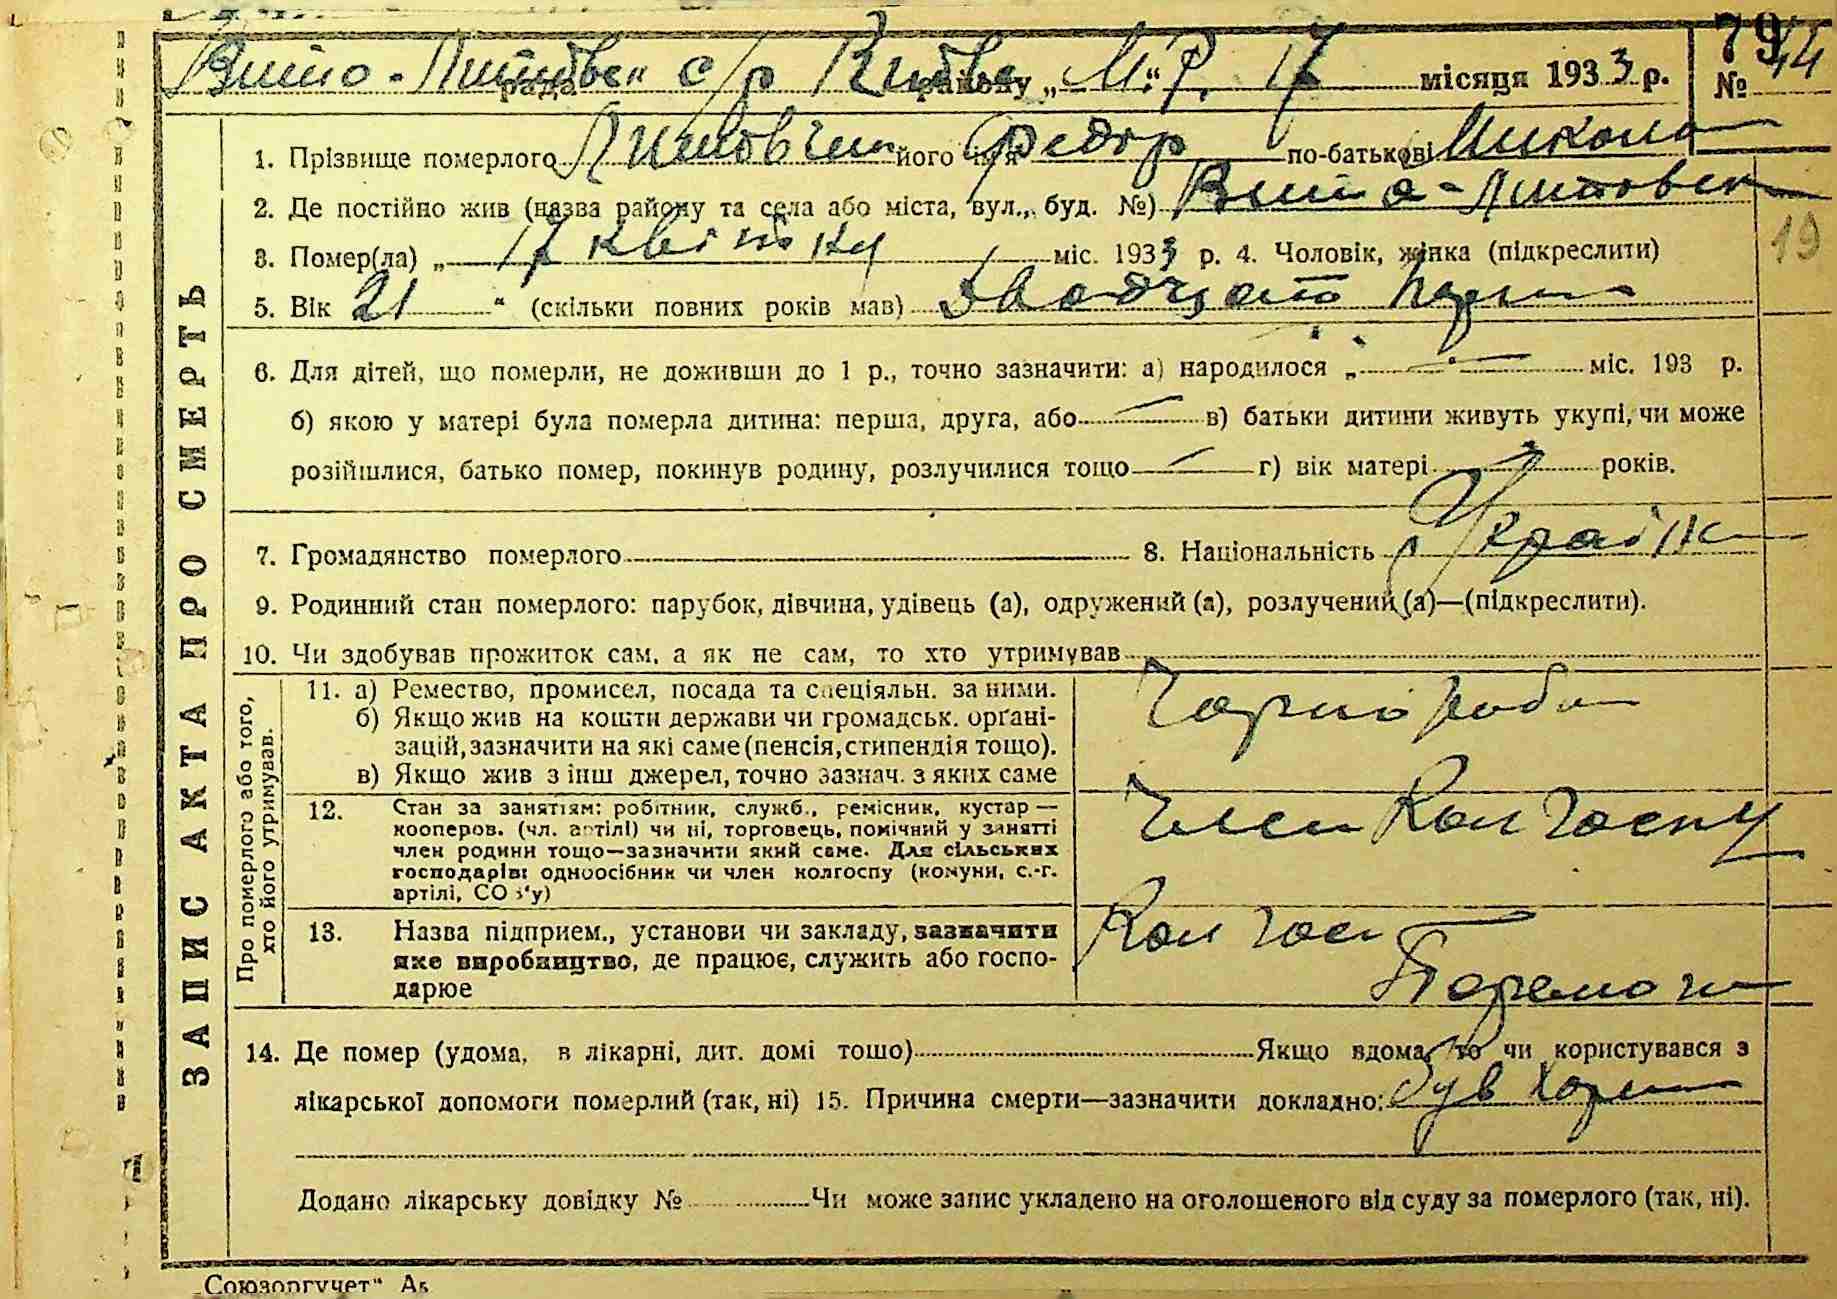 79
Вито-Литовс" с/р Київс М.Р. 17 місяця 1933 р. № 44
рада району „ "
1. Прізвище померлого Литовчен його ім'я Федор по-батькові Микола
2. Де постійно жив (назва району та села або міста, вул., буд. №) Вита-Литовск
3. Помер(ла) „ 17 квітня міс. 1933 р. 4. Чоловік, жінка (підкреслити)
19
5. Вік 21 " (скільки повних років мав) двадцать
6. Для дітей, що померли, не доживши до 1 р., точно зазначити: а) народилося „ — " — міс. 193 р.
б) якою у матері була померла дитина: перша, друга, або — в) батьки дитини живуть укупі, чи може
розійшлися, батько помер, покинув родину, розлучилися тощо — г) вік матері — років.
7. Громадянство померлого 8. Національність Україн
9. Родинний стан померлого: парубок, дівчина, удівець (а), одружений (а), розлучений (а)—(підкреслити).
10. Чи здобував прожиток сам, а як не сам, то хто утримував
ЗАПИС АКТА ПРО СМЕРТЬ
Про померлого або того,
хто його утримував.
11. а) Ремество, промисел, посада та спеціяльн. за ними.
б) Якщо жив на кошти держави чи громадськ. орґані-
зацій, зазначити на які саме (пенсія, стипендія тощо).
в) Якщо жив з інш джерел, точно зазнач. з яких саме
Чорнороб
12. Стан за занятіям: робітник, служб., ремісник, кустар —
кооперов. (чл. артілі) чи ні, торговець, помічний у занятті
член родини тощо—зазначити який саме. Для сільських
господарів: одноосібник чи член колгоспу (комуни, с.-г.
артілі, СОЗ'у)
Член Колгоспу
13. Назва підприєм., установи чи закладу, зазначити
яке виробництво, де працює, служить або госпо-
дарює
Колгосп
Перемога
14. Де помер (удома, в лікарні, дит. домі тошо) Якщо вдома, то чи користувався з
лікарської допомоги померлий (так, ні) 15. Причина смерти—зазначити докладно: був хорий
Додано лікарську довідку № Чи може запис укладено на оголошеного від суду за померлого (так, ні).
„Союзоргучет"